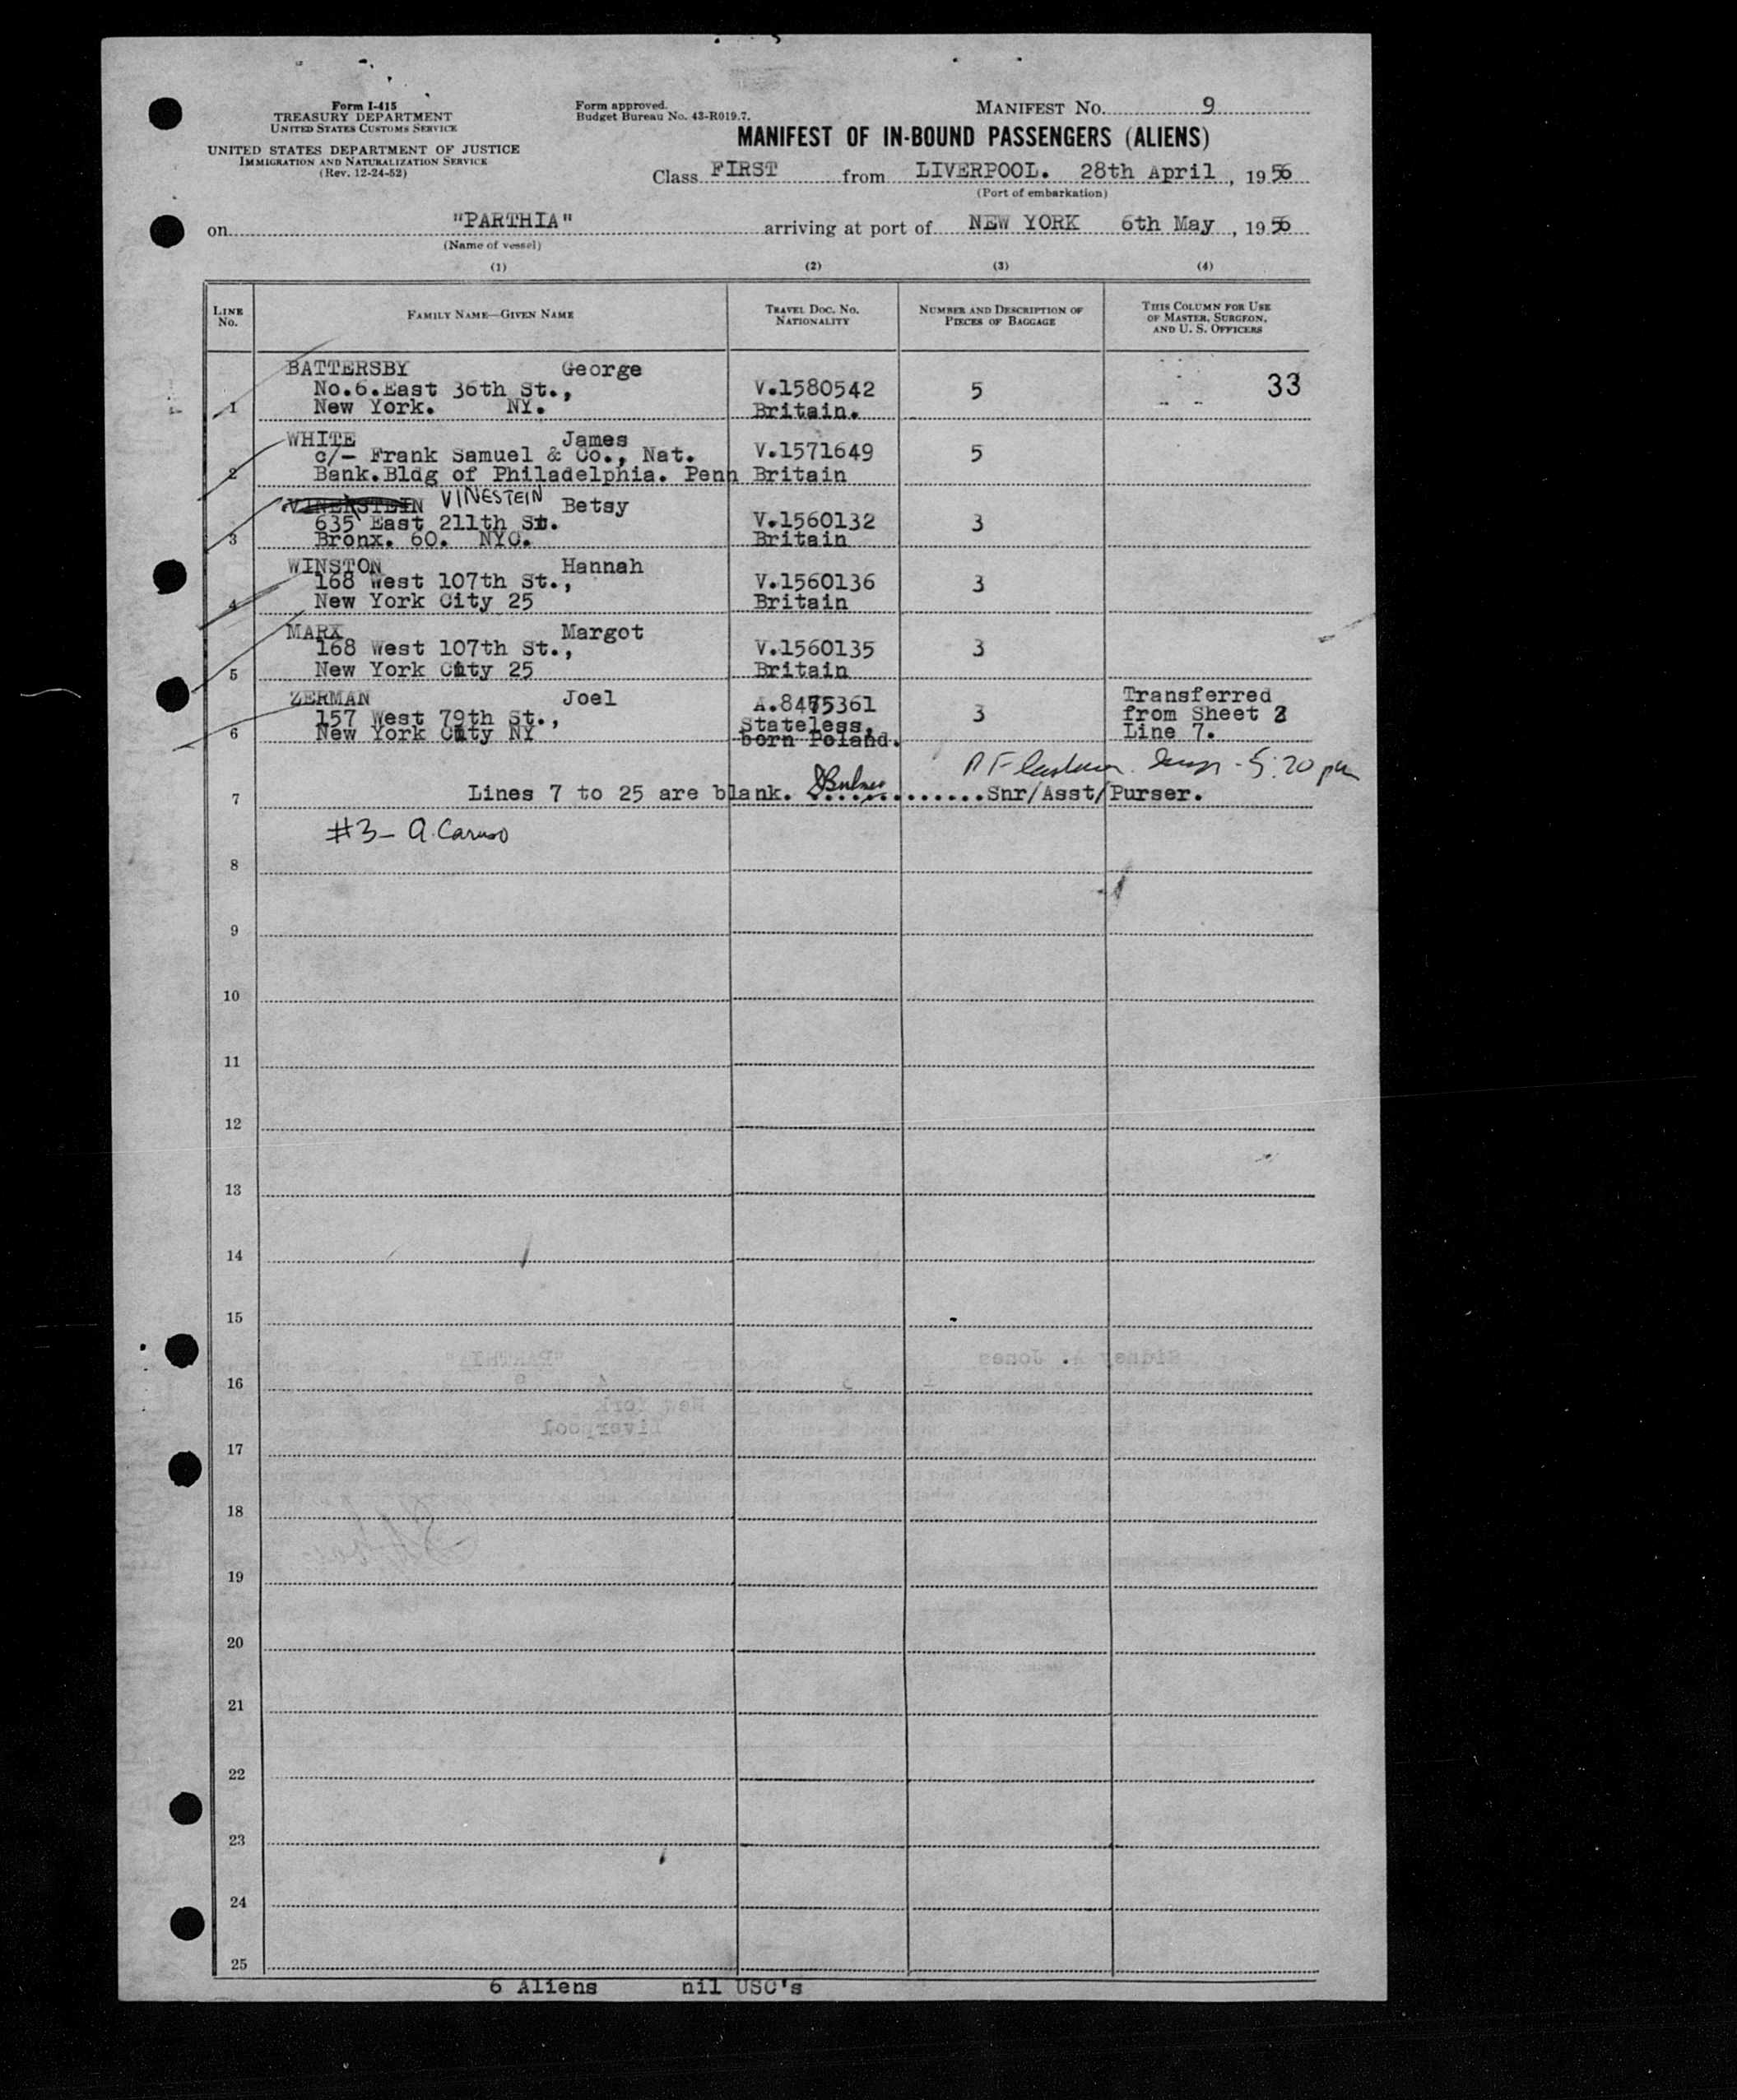 Form I-415
TREASURY DEPARTMENT
UNITED STATES CUSTOMS SERVICE
UNITED STATES DEPARTMENT OF JUSTICE
IMMIGRATION AND NATURALIZATION SERVICE
(Rev. 12-24-52)
Form approved.
Budget Bureau No. 43-R019.7.
MANIFEST No. 9
MANIFEST OF IN-BOUND PASSENGERS (ALIENS)
Class FIRST from LIVERPOOL. 28th April, 1956
(Port of embarkation)
on "PARTHIA" arriving at port of NEW YORK 6th May, 1956
(Name of vessel)
(1) (2) (3) (4)
LINE No. FAMILY NAME—GIVEN NAME TRAVEL DOC. NO. NATIONALITY NUMBER AND DESCRIPTION OF PIECES OF BAGGAGE THIS COLUMN FOR USE OF MASTER, SURGEON, AND U. S. OFFICERS
BATTERSBY George
No.6.East 36th St., V.1580542 5 33
1 New York. NY. Britain.
WHITE James
c/- Frank Samuel & Co., Nat. V.1571649 5
2 Bank.Bldg of Philadelphia. Penn Britain
VINESTEIN Betsy
635 East 211th St. V.1560132 3
3 Bronx. 60. NYC. Britain
WINSTON Hannah
168 West 107th St., V.1560136 3
4 New York City 25 Britain
MARX Margot
168 West 107th St., V.1560135 3
5 New York City 25 Britain
ZERMAN Joel A.8475361 Transferred
157 West 79th St., Stateless, 3 from Sheet 2
6 New York City NY born Poland. Line 7.
5:20 pm
7 Lines 7 to 25 are blank. Snr/Asst/Purser.
#3- A. Caruso
8
9
10
11
12
13
14
15
16
17
18
19
20
21
22
23
24
25
6 Aliens nil USC's